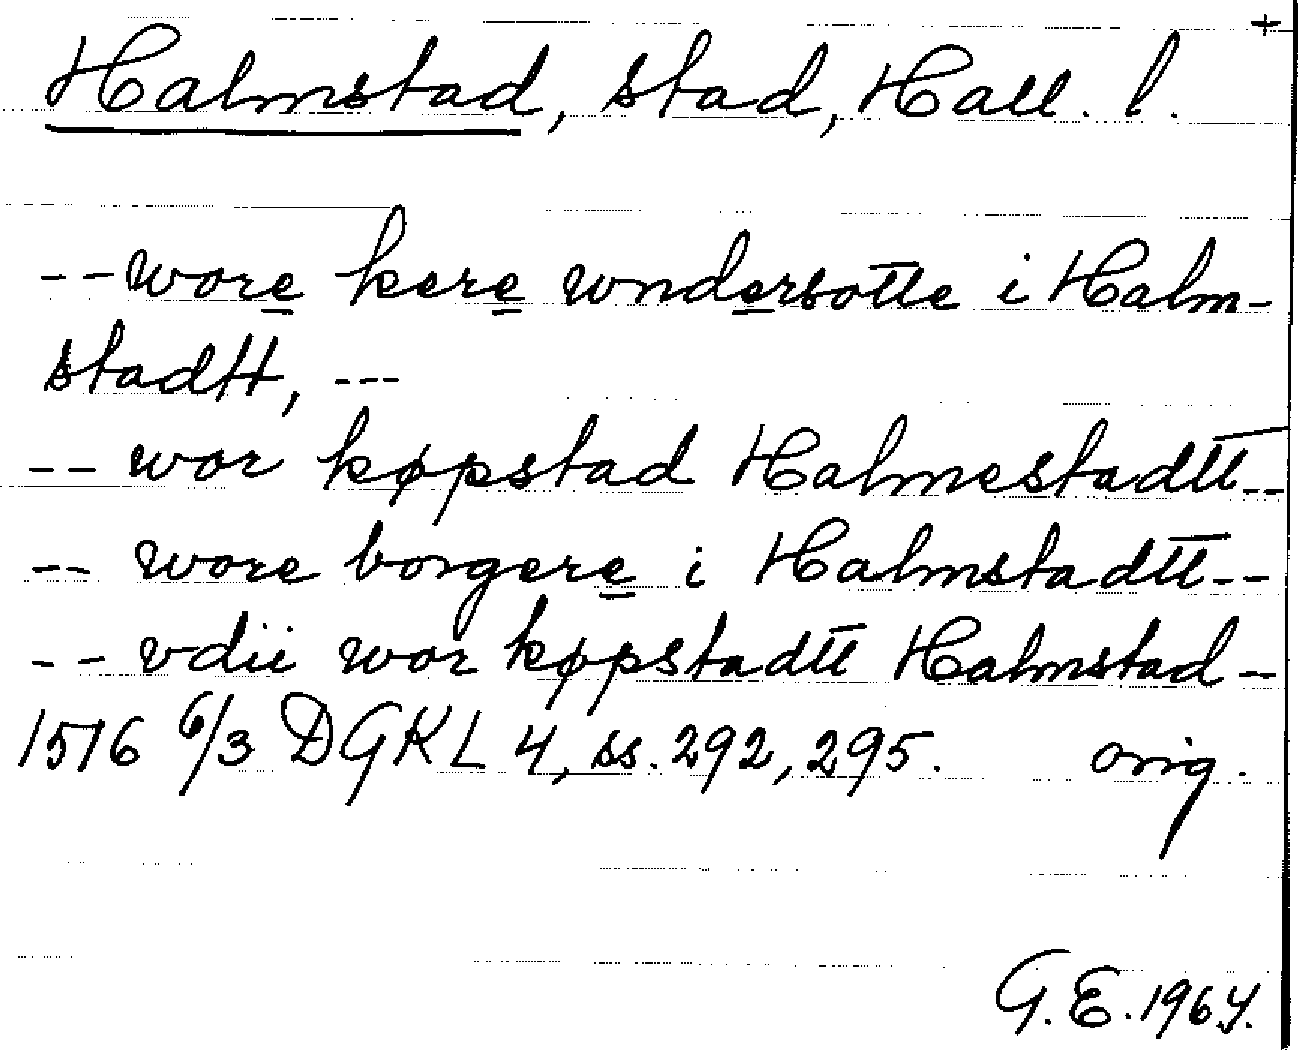 +
Halmstad, stad, Hall. l.
-- wore kere wndersotte i Halm-
stadtt, ---
-- wor køpstad Halmestadtt --
-- wore borgere i Halmstadtt --
-- vdii wor køpstadtt Halmstad --
1516 6/3 DGKL 4, ss. 292, 295. orig.
G. E. 1964.